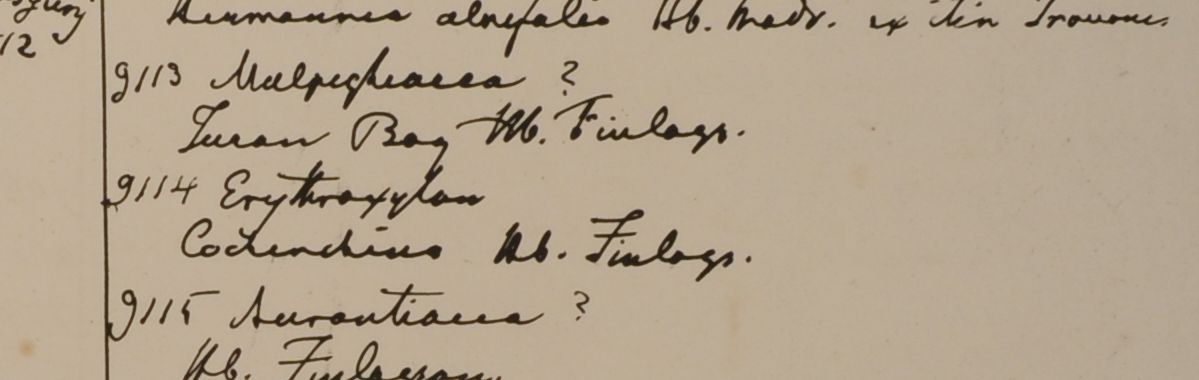 Hermannia alnifolia Hb. Madr. ex itin
12
9113 Malpighiacea ?
Turan Bay Hb. Finlays.
9114 Erythroxylon
Cochinchina Hb. Finlays.
9115 Aurantiacea ?
Hb. Finlayson